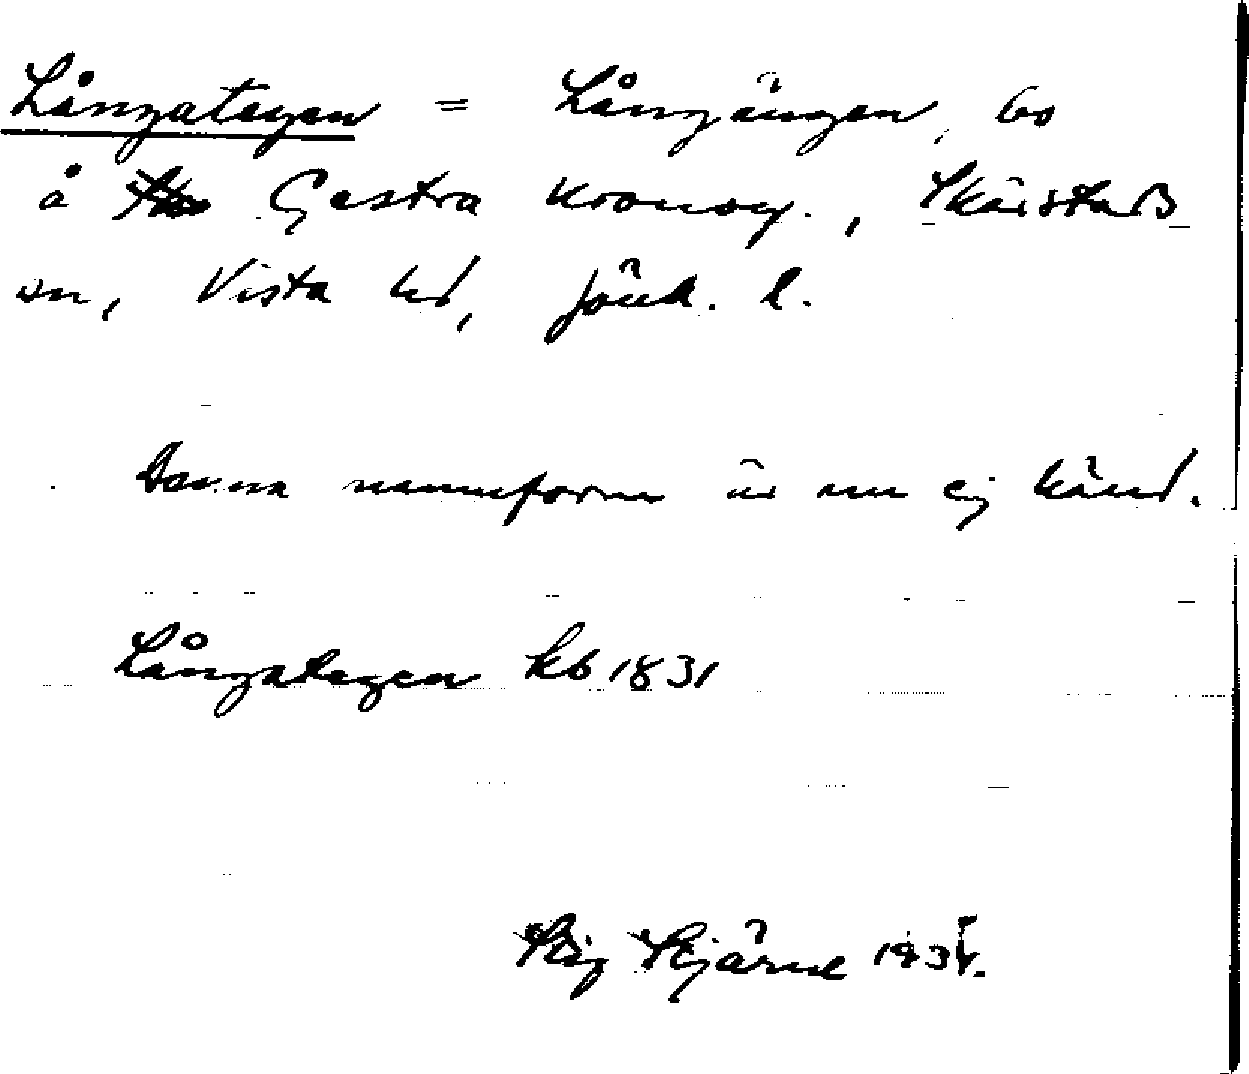 Långategen = Långängen, bo
å Gestra kronoeg., Skärstads
sn, Vista hd, Jönk. l.
Denna namnform är nu ej känd.
Långategen kb 1831
Stig Stjärne 193